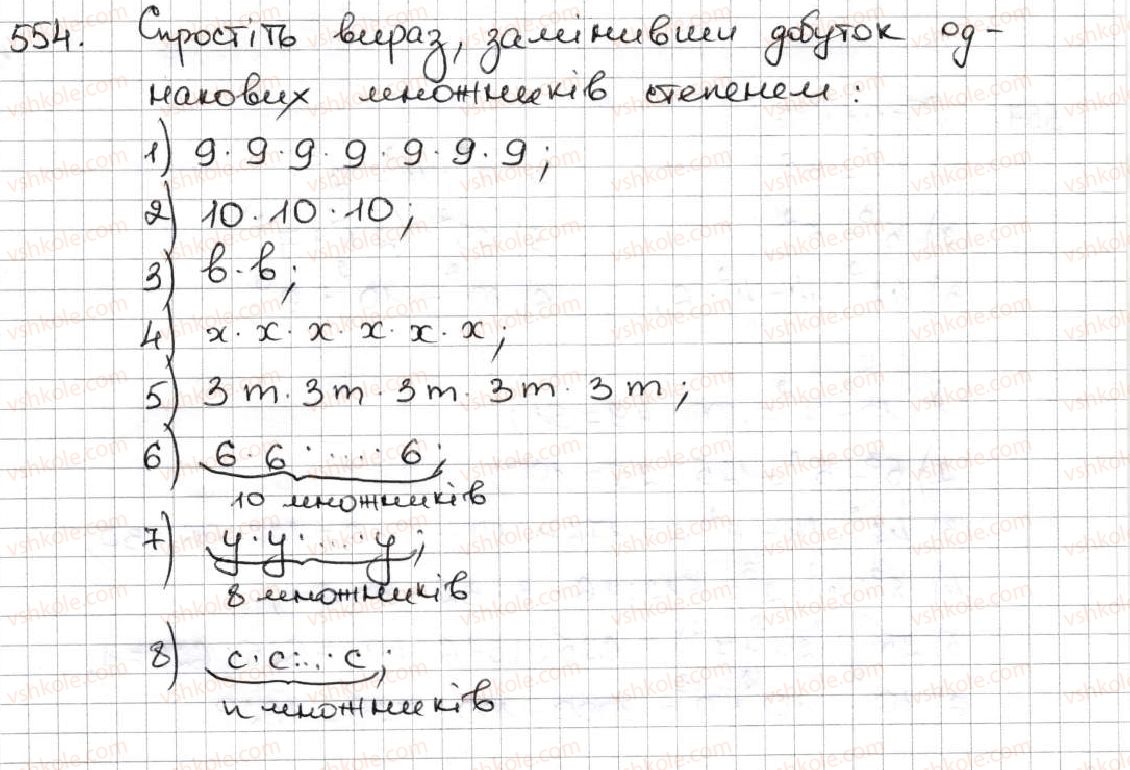 554. Спростіть вираз, замінивши добуток од-
накових множників степенем:
1) 9·9·9·9·9·9·9;
2) 10·10·10;
3) в·в;
4) x·x·x·x·x·x;
5) 3m·3m·3m·3m·3m;
6) 6·6·....·6;
10 множників
7) y·y·....·y;
8 множників
8) c·c·...·c;
n множників